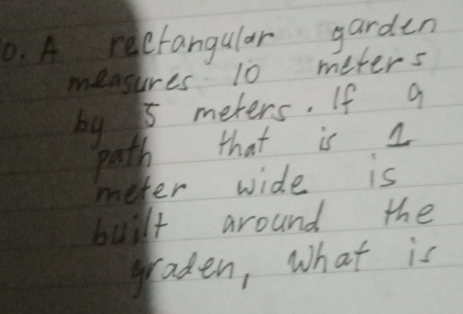 0. A rectangular garden
measures 10 meters
by 5 meters. If a
path that is 1
meter wide is
built around the
graden, what is